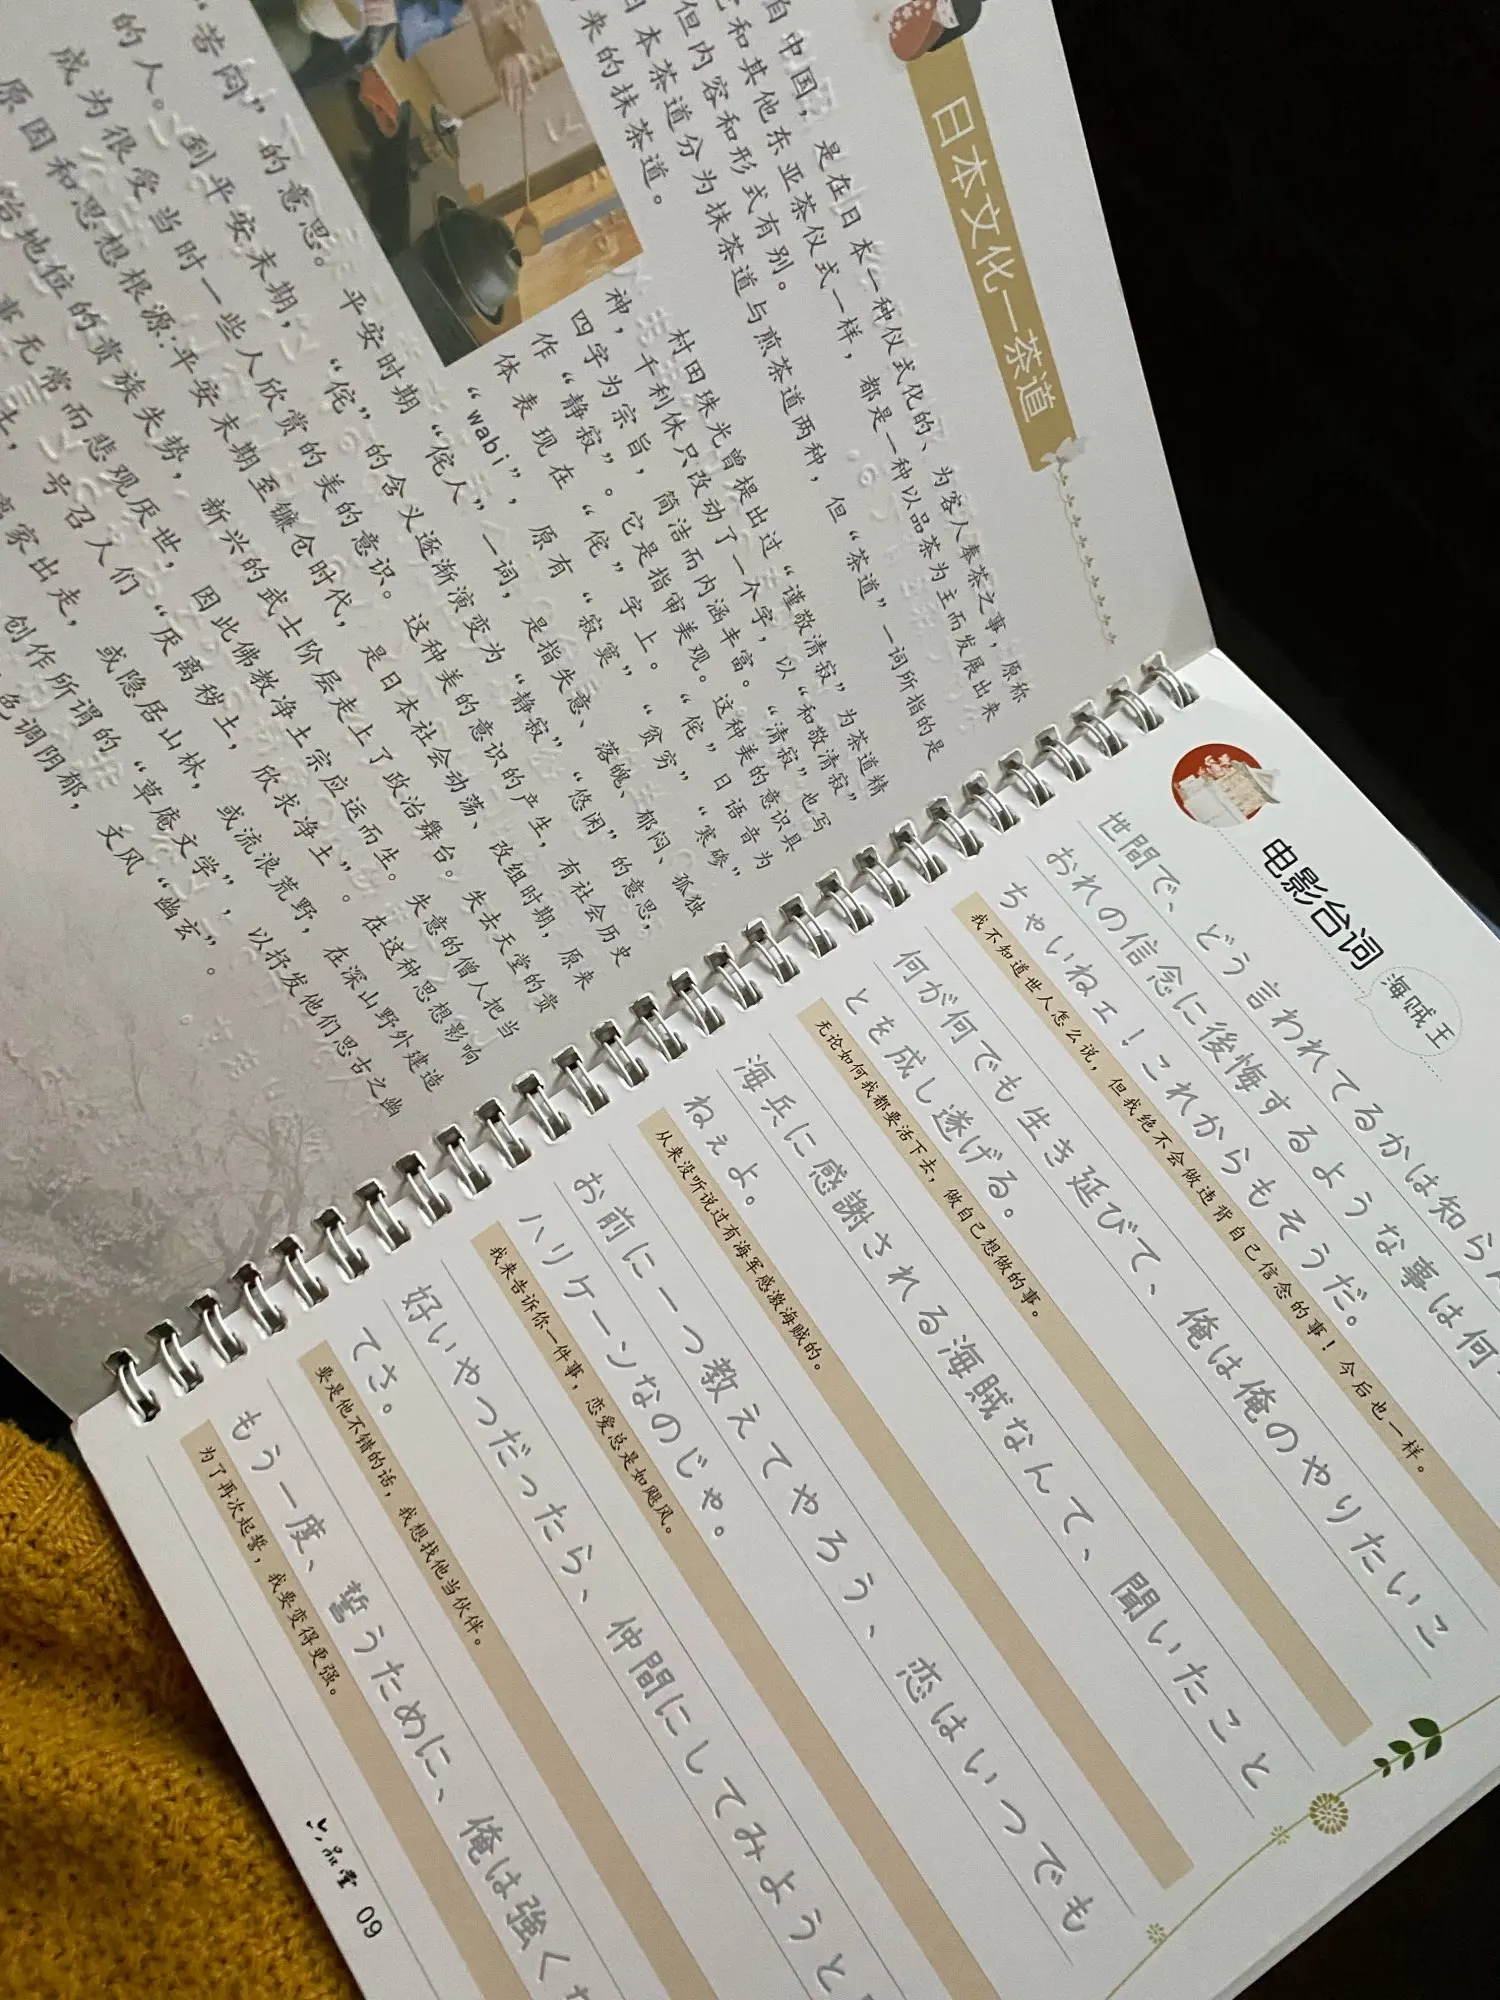 日本文化—茶道
自中国，是在日本一种仪式化的、为客人奉茶之事，原称
和其他东亚茶仪式一样，都是一种以品茶为主而发展出来
但内容和形式有别。
日本茶道分为抹茶道与煎茶道两种，但“茶道”一词所指的是
来的抹茶道。
村田珠光曾提出过“谨敬清寂”为茶道精
神，千利休只改动了一个字，以“和敬清寂”
四字为宗旨，简洁而内涵丰富。“清寂”也写
作“静寂”。它是指审美观。这种美的意识具
体表现在“侘”字上。“侘”日语音为
“wabi”，原有“寂寞”“贫穷”“寒碜”
“苦闷”的意思。平安时期“侘人”一词，是指失意、落魄、郁闷、孤独
的人。到平安末期，“侘”的含义逐渐演变为“静寂”“悠闲”的意思，
成为很受当时一些人欣赏的美的意识。这种美的意识的产生，有社会历史
原因和思想根源：平安末期至镰仓时代，是日本社会动荡、改组时期，原来
治地位的贵族失势，新兴的武士阶层走上了政治舞台。失去天堂的贵
事无常而悲观厌世，因此佛教净土宗应运而生。失意的僧人把当
土，号召人们“厌离秽土，欣求净土”。在这种思想影响
离家出走，或隐居山林，或流浪荒野，在深山野外建造
创作所谓的“草庵文学”，以抒发他们思古之幽
色调阴郁，文风“幽玄”。
电影台词
海贼王
世間で、どう言われてるかは知らん
おれの信念に後悔するような事は何
ちゃいねェ！これからもそうだ。
我不知道世人怎么说，但我绝不会做违背自己信念的事！今后也一样。
何が何でも生き延びて、俺は俺のやりたいこ
とを成し遂げる。
无论如何我都要活下去，做自己想做的事。
海兵に感謝される海賊なんて、聞いたこと
ねぇよ。
从来没听说过有海军感激海贼的。
お前に一つ教えてやろう、恋はいつでも
ハリケーンなのじゃ。
我来告诉你一件事，恋爱总是如飓风。
好いやつだったら、仲間にしてみようと
てさ。
要是他不错的话，我想找他当伙伴。
もう一度、誓うために、俺は強くな
为了再次起誓，我要变得更强。
六品堂 09